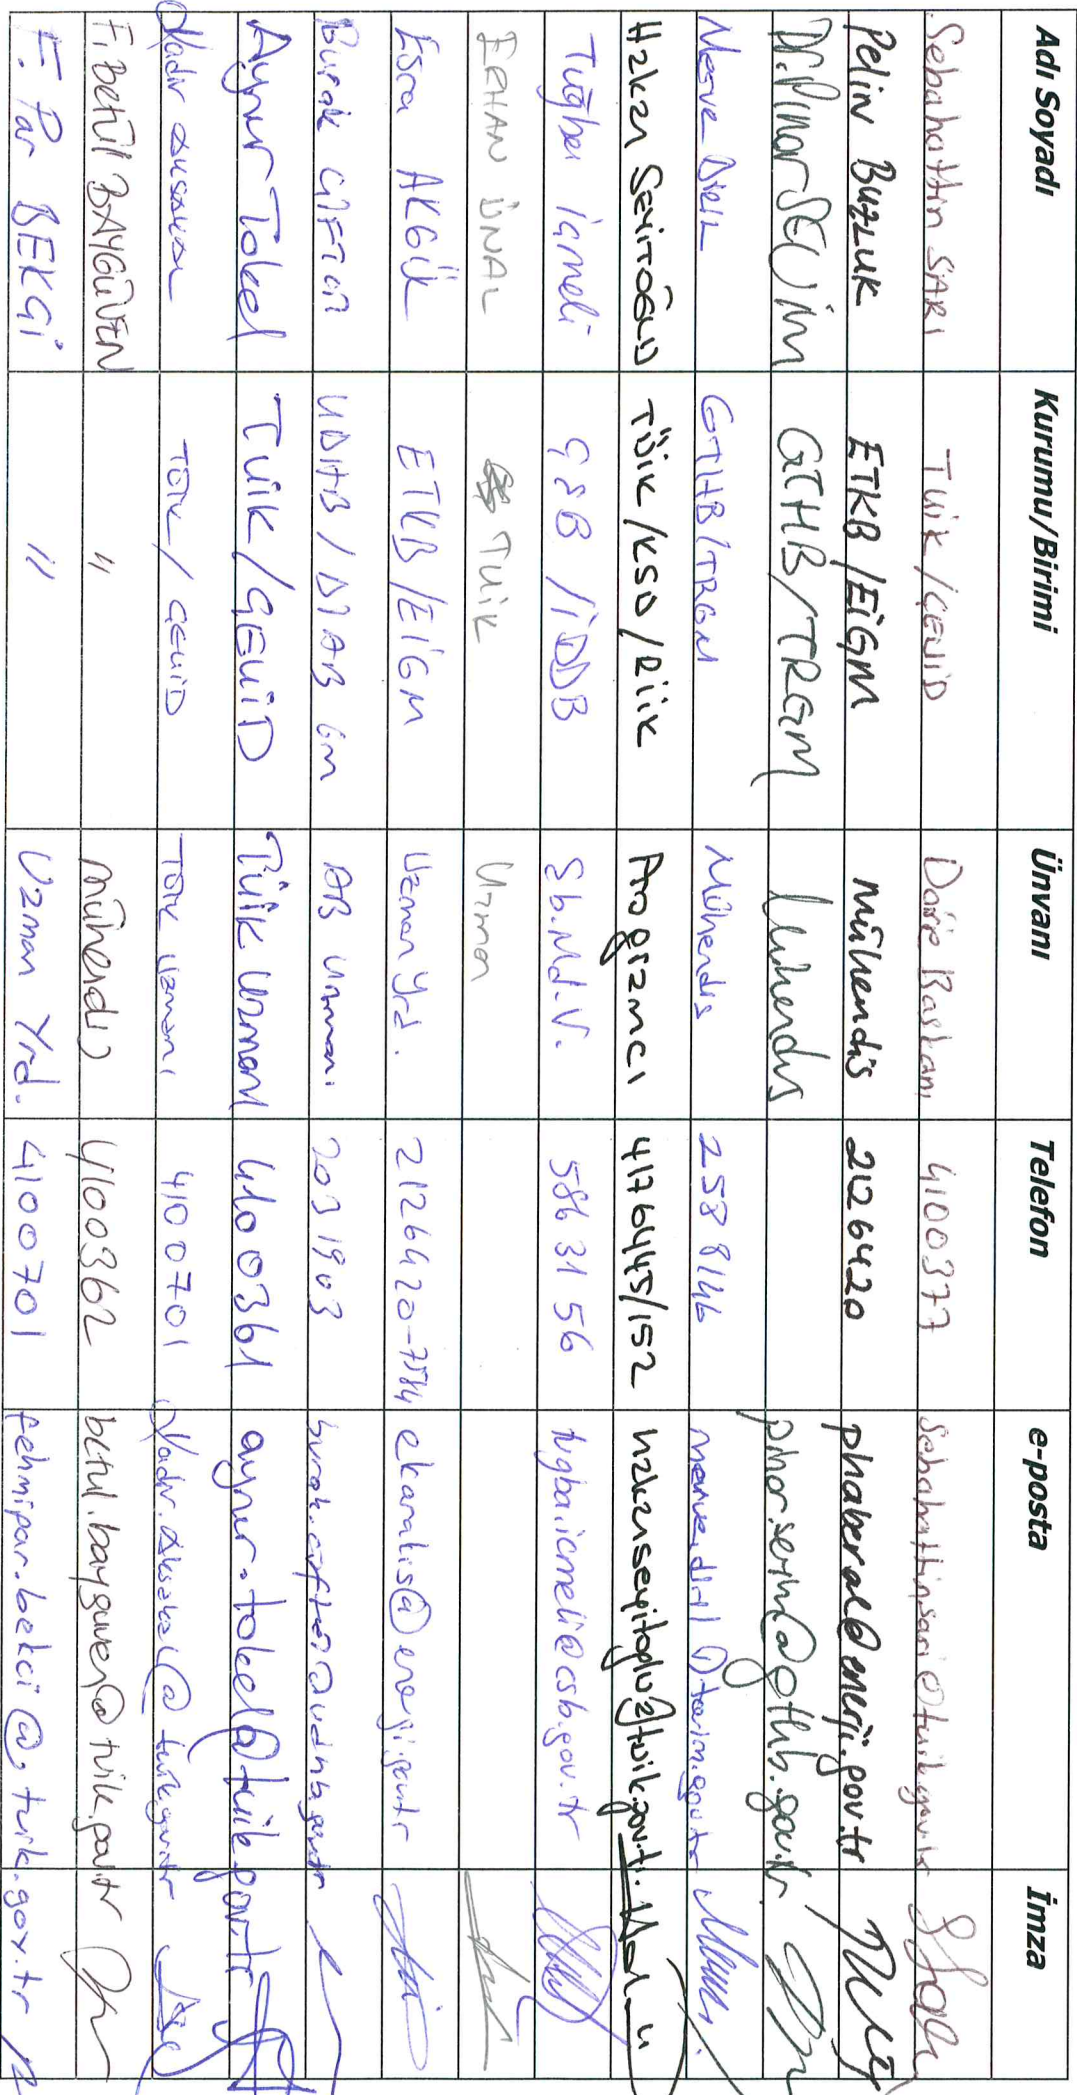 Adı Soyadı Kurumu/Birimi Ünvanı Telefon e-posta İmza
Sebahattin SARI Tüik/ÇEUİD Daire Başkanı 4100377 sebahattin.sari@tuik.gov.tr
Pelin Buzluk ETKB/EİGM mühendis 2126420 phaberal@enerji.gov.tr
Dr. Pınar SEVİM GTHB/TRGM Mühendis pinar.sevim@gthb.gov.tr
Merve GTHB/TRGM Mühendis 258 8146
Hakan SEYİTOĞLU TÜİK/KSD/ Programcı 4176445/152 hakanseyitoglu@tuik.gov.tr
Tuğba İçmeli ÇŞB/İDDB Şb. Md. V. 586 31 56 tugba.icmeli@csb.gov.tr
ERHAN ÜNAL TÜİK Uzman
Esra AKGÜL ETKB/EİGM Uzman Yrd. 2126420-7584 @enerji.gov.tr
Burak ÇİFTÇİ UDHB/DİABGM AB Uzmanı 203 1903 burak.ciftci@udhb.gov.tr
Aynur Tokel TÜİK/ÇEUİD TÜİK Uzmanı 4100361 aynur.tokel@tuik.gov.tr
Kadir TÜİK/ÇEUİD TÜİK Uzmanı 4100701 @tuik.gov.tr
F. Betül BAYGÜVEN " mühendis 4100362 betul.bayguven@tuik.gov.tr
F. Par BEKÇİ " Uzman Yrd. 4100701 fehmipar.bekci@tuik.gov.tr